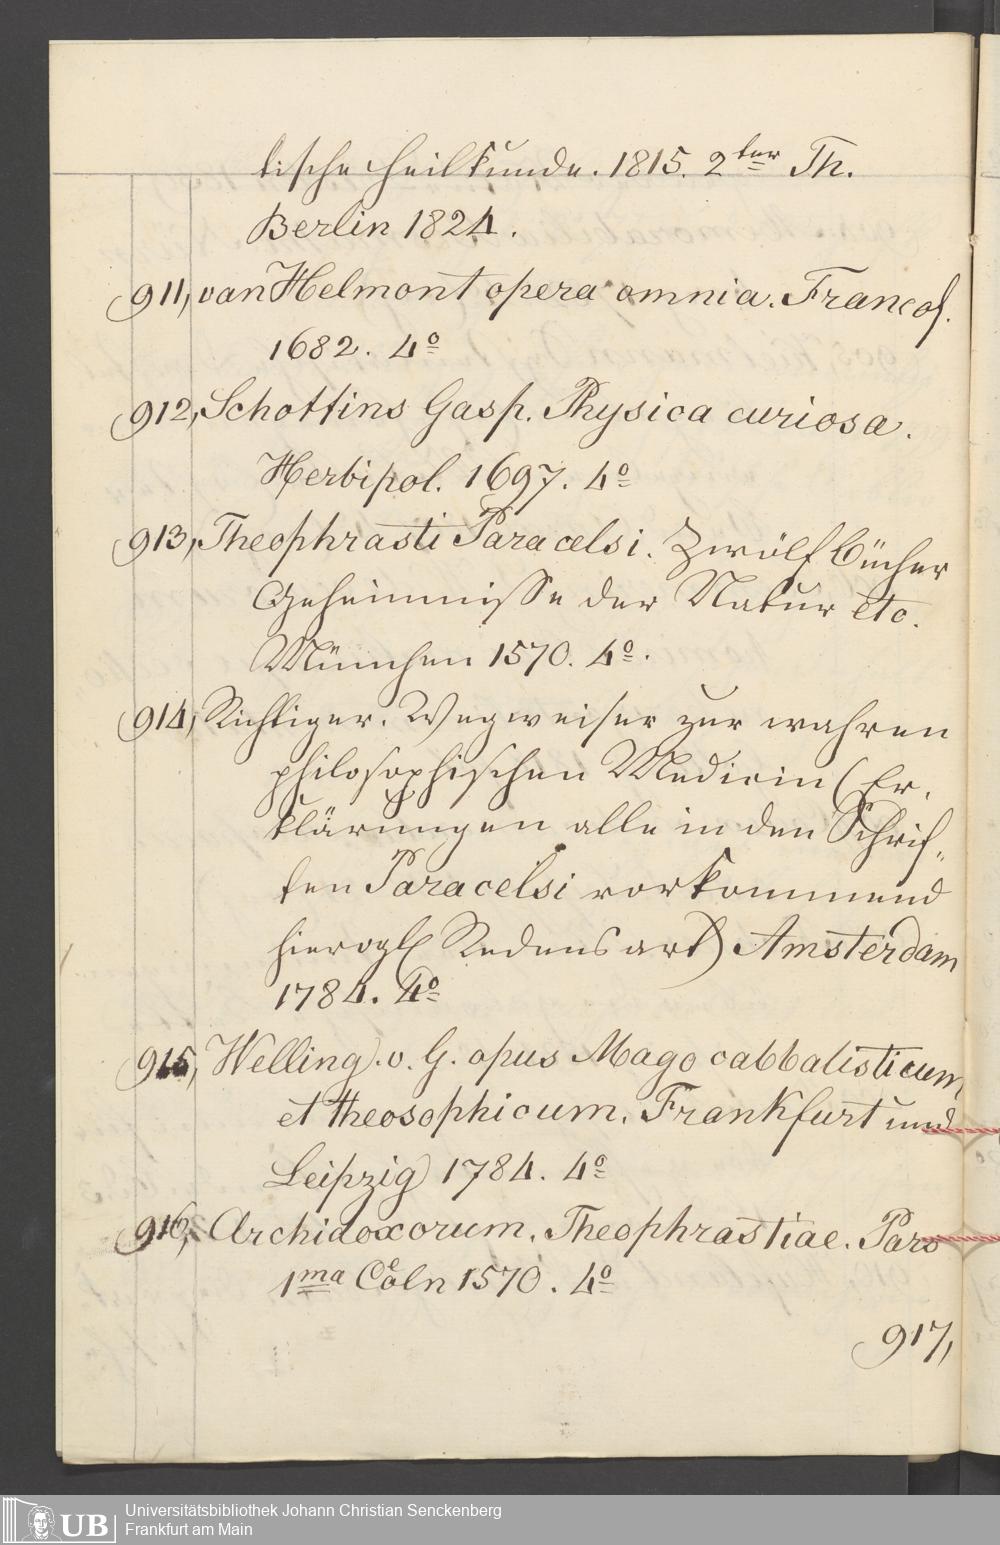 tische Heilkunde. 1815. 2ter Th.
Berlin 1824.
911, van Helmont opera omnia. Francof.
1682. 4o
912, Schottins Gasp. Physica curiosa.
Herbipol. 1697. 4o
913, Theophrasti Paracelsi. Zwölf Bücher
Geheimnisse der Natur etc.
München 1570. 4o.
914, Richtiger. Wegweiser zur wahren
philosophischen Medicin (Er-
klärungen alle in den Schrif„
ten Paracelsi vorkommend
hierogl Redensart) Amsterdam
1784. 4o
915, Welling v. G. opus Mago cabbalisticum
et theosophicum. Frankfurt und
Leipzig 1784. 4o
916, Archidoxorum. Theophrastiae. Pars
1ma Cöln 1570. 4o
917,
UB
Universitätsbibliothek Johann Christian Senckenberg
Frankfurt am Main